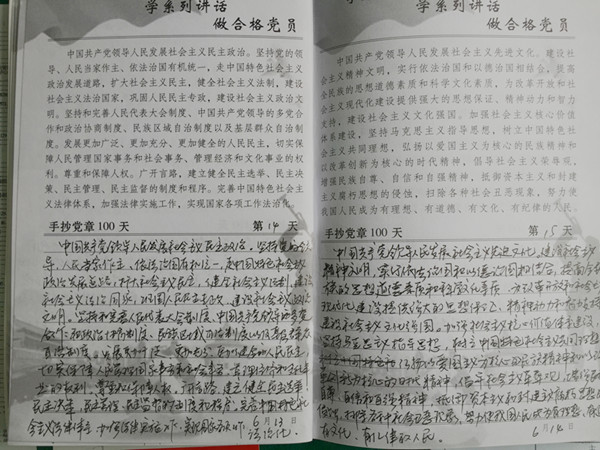 学系列讲话
做合格党员
中国共产党领导人民发展社会主义民主政治。坚持党的领
导、人民当家作主、依法治国有机统一,走中国特色社会主义
政治发展道路,扩大社会主义民主,健全社会主义法制,建设
社会主义法治国家,巩固人民民主专政,建设社会主义政治文
明。坚持和完善人民代表大会制度、中国共产党领导的多党合
作和政治协商制度、民族区域自治制度以及基层群众自治制
度。发展更加广泛、更加充分、更加健全的人民民主,切实保
障人民管理国家事务和社会事务、管理经济和文化事业的权
利。尊重和保障人权。广开言路,建立健全民主选举、民主决
策、民主管理、民主监督的制度和程序。完善中国特色社会主
义法律体系,加强法律实施工作,实现国家各项工作法治化。
手抄党章 100 天 第 14 天
中国共产党领导人民发展社会主义民主政治。坚持党的领
导、人民当家作主、依法治国有机统一,走中国特色社会主义
政治发展道路,扩大社会主义民主,健全社会主义法制,建设
社会主义法治国家,巩固人民民主专政,建设社会主义政治
文明。坚持和完善人民代表大会制度、中国共产党领导的多党
合作和政治协商制度、民族区域自治制度以及基层群众
自治制度。发展更加广泛、更加充分、更加健全的人民民主,
切实保障人民管理国家事务和社会事务、管理经济和文化事
业的权利。尊重和保障人权。广开言路,建立健全民主选举、
民主决策、民主管理、民主监督的制度和程序。完善中国特色社
会主义法律体系,加强法律实施工作,实现国家各项工作
法治化。
6 月 13 日
学系列讲话
做合格党员
中国共产党领导人民发展社会主义先进文化。建设
社会主义精神文明,实行依法治国和以德治国相结合,提高
全民族的思想道德素质和科学文化素质,为改革开放和社
会主义现代化建设提供强大的思想保证、精神动力和智力
支持,建设社会主义文化强国。加强社会主义核心价值
体系建设,坚持马克思主义指导思想,树立中国特色社会
主义共同理想,弘扬以爱国主义为核心的民族精神和
以改革创新为核心的时代精神,倡导社会主义荣辱观,
增强民族自尊、自信和自强精神,抵御资本主义和封建
主义腐朽思想的侵蚀,扫除各种社会丑恶现象,努力使
我国人民成为有理想、有道德、有文化、有纪律的人民。
手抄党章 100 天 第 15 天
中国共产党领导人民发展社会主义先进文化。建设社会主义
精神文明,实行依法治国和以德治国相结合,提高全民
族的思想道德素质和科学文化素质,为改革开放和社会主义
现代化建设提供强大的思想保证、精神动力和智力支持,
建设社会主义文化强国。加强社会主义核心价值体系建设,
坚持马克思主义指导思想,树立中国特色社会主义共同理想,
弘扬以爱国主义为核心的民族精神和以改
革创新为核心的时代精神,倡导社会主义荣辱观,增强民族自尊、
自信和自强精神,抵御资本主义和封建主义腐朽思想
侵蚀,扫除各种社会丑恶现象,努力使我国人民成为有理想、有道德、
有文化、有纪律的人民。
6 月 14 日